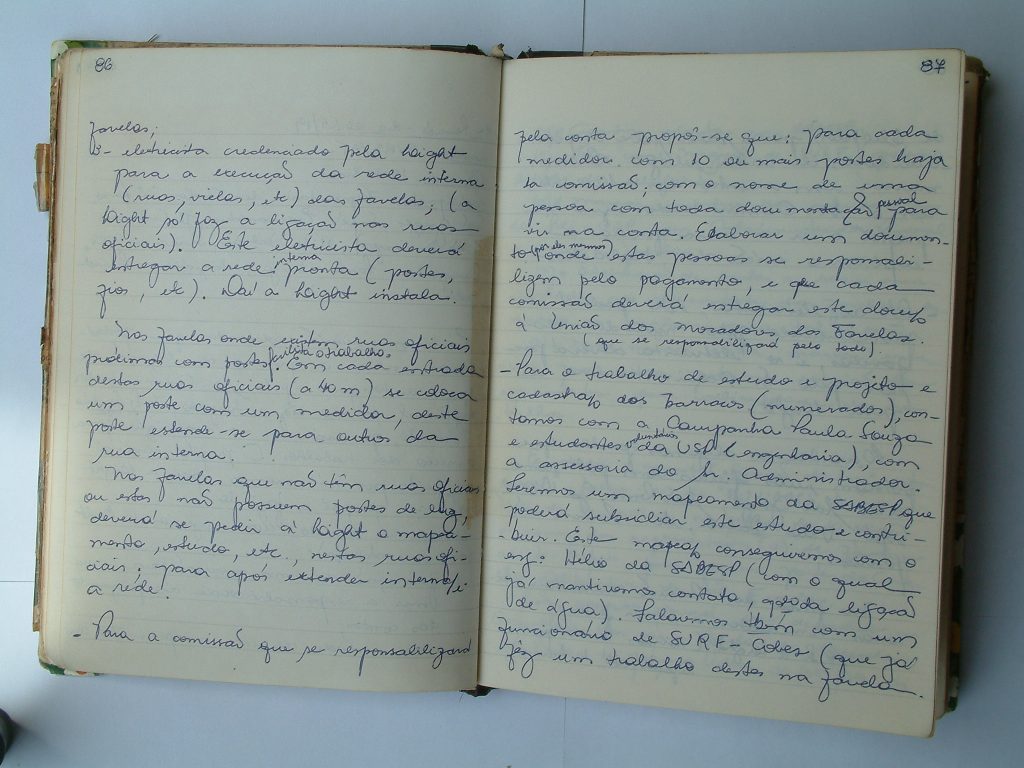 86
favelas;
3- eletricista credenciado pela Light
para a execução da rede interna
(ruas, vielas, etc) das favelas; (a
Light só faz a ligação nas ruas
oficiais). Este eletricista deverá
entregar a rede interna pronta (postes,
fios, etc). Daí a Light instala.
Nas favelas onde existem ruas oficiais
próximas com postes, facilita o trabalho. Em cada entrada
destas ruas oficiais (a 40 m) se coloca
um poste com um medidor, deste
poste estende-se para outros da
rua interna.
Nas favelas que não têm ruas oficiais
ou estas não possuem postes de luz,
deverá se pedir à Light o mapea-
mento, estudo, etc., nestas ruas ofi-
ciais, para após extender
a rêde.
- Para a comissão que se responsabilizará
87
pela conta propôs-se que: para cada
medidor com 10 ou mais postes haja
1a comissão; com o nome de uma
pessoa com toda documentação pessoal para
vir na conta. Elaborar um documen-
to (por eles mesmos) onde estas pessoas se responsabi-
lizem pelo pagamento, e que cada
comissão deverá entregar este docto
à União dos moradores das Favelas.
(que se responsabilizará pelo todo)
- Para o trabalho de estudo e projeto e
cadastrato dos barracos (numerados), con-
tamos com a Campanha Paula Souza
e estudantes voluntários da USP (engenharia), com
a assessoria do Sr. Administrador.
Teremos um mapeamento da SABESP que
poderá subsidiar este estudo e contri-
buir. Este mapeato conseguiremos com o
eng: Hélio da SABESP (com o qual
já mantivemos contato, qdo da ligação
de água). Falaremos tbém com um
funcionário de SURF-Cobes (que já
fêz um trabalho destes na favela.